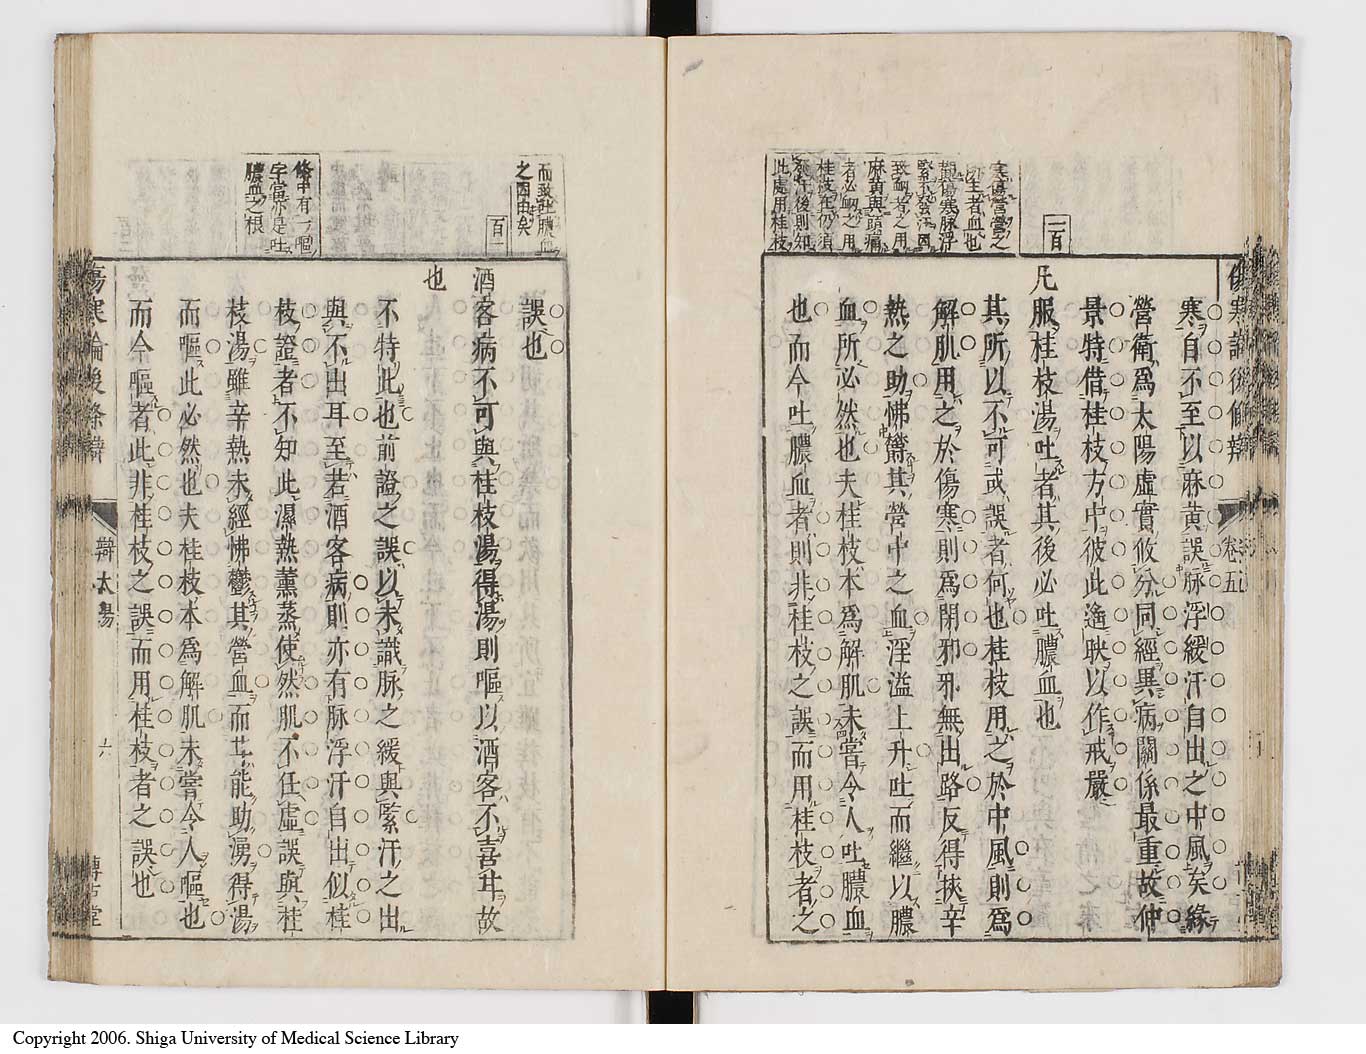 傷寒論後條辯
卷五
寒自不至以麻黃誤脉浮緩汗自出之中風矣緣
營衞爲太陽虛實攸分同經異病關係最重故仲
景特借桂枝方中彼此遙映以作戒嚴
凡服桂枝湯吐者其後必吐膿血也
其所以不可或誤者何也桂枝用之於中風則爲
解肌用之於傷寒則爲閉邪邪無出路反得挾辛
熱之助怫鬱其營中之血淫溢上升吐而繼以膿
血所必然也夫桂枝本爲解肌未嘗令人吐膿血
也而今吐膿血者則非桂枝之誤而用桂枝者之
一百
寒傷營營之
所主者血也
頭傷寒脉浮
緊不發汗因
致衂者之用
麻黃與頭痛
者必衂之用
桂枝在仍須
發汗後則知
此處用桂枝
而致吐膿血
之因由矣
百一
條中有一嘔
字當亦是吐
膿血之根
誤也
酒客病不可與桂枝湯得湯則嘔以酒客不喜甘故
也
不特此也前證之誤以未識脉之緩與緊汗之出
與不出耳至若酒客病則亦有脉浮汗自出似桂
枝證者不知此濕熱薰蒸使然肌不任虛誤與桂
枝湯雖辛熱未經怫鬱其營血而甘能助湧得湯
而嘔此必然也夫桂枝本爲解肌未嘗令人嘔也
而今嘔者此非桂枝之誤而用桂枝者之誤也
傷寒論後條辯
辯太陽
六
博古堂
Copyright 2006. Shiga University of Medical Science Library